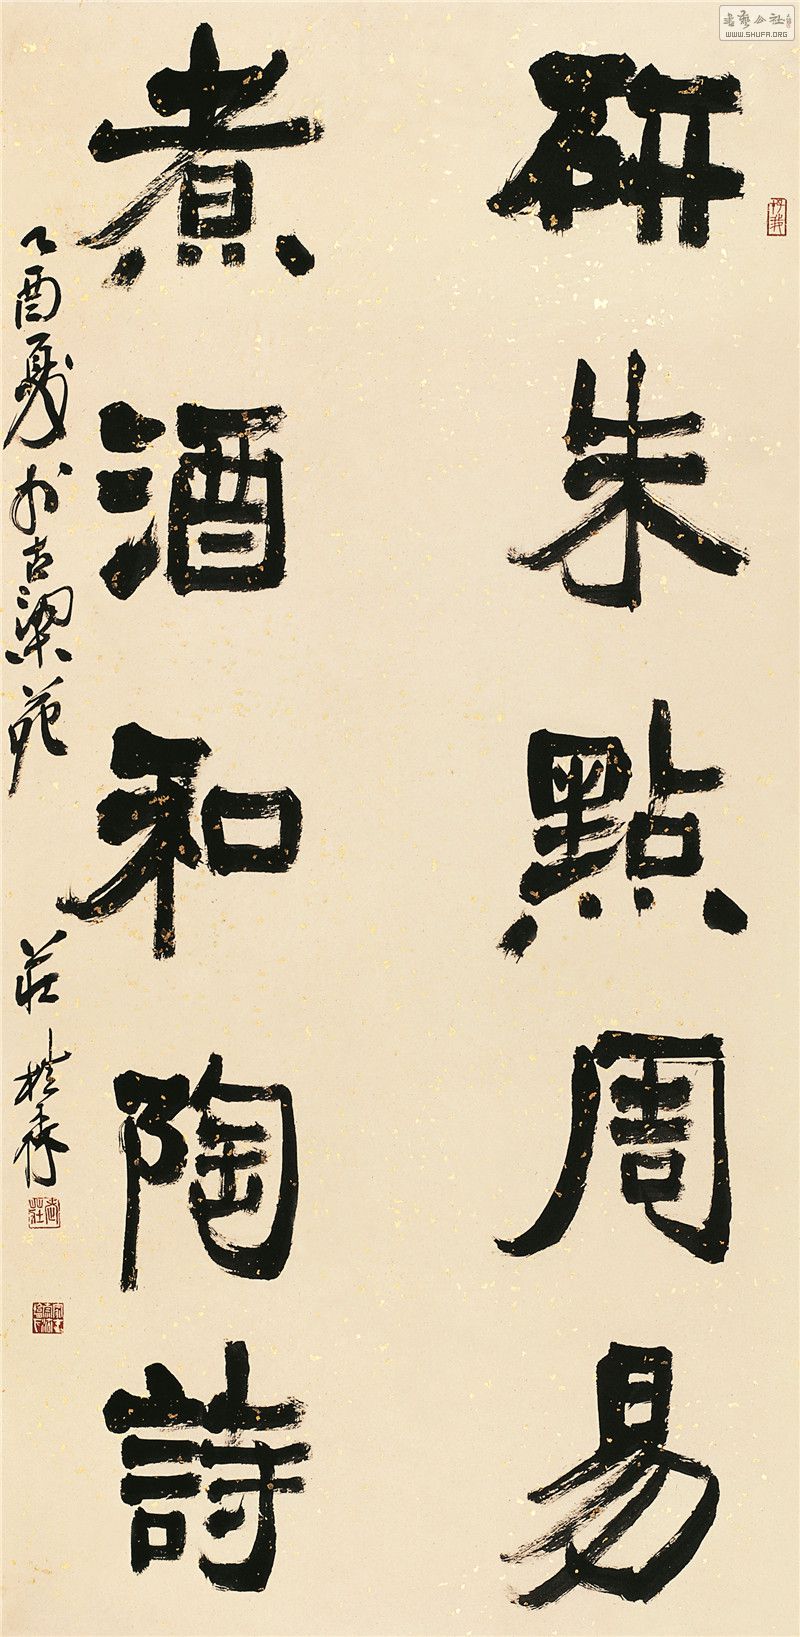 研朱點周易
煮酒和陶詩
乙酉夏於古梁苑
莊桂森
書藝公社
WWW.SHUFA.ORG